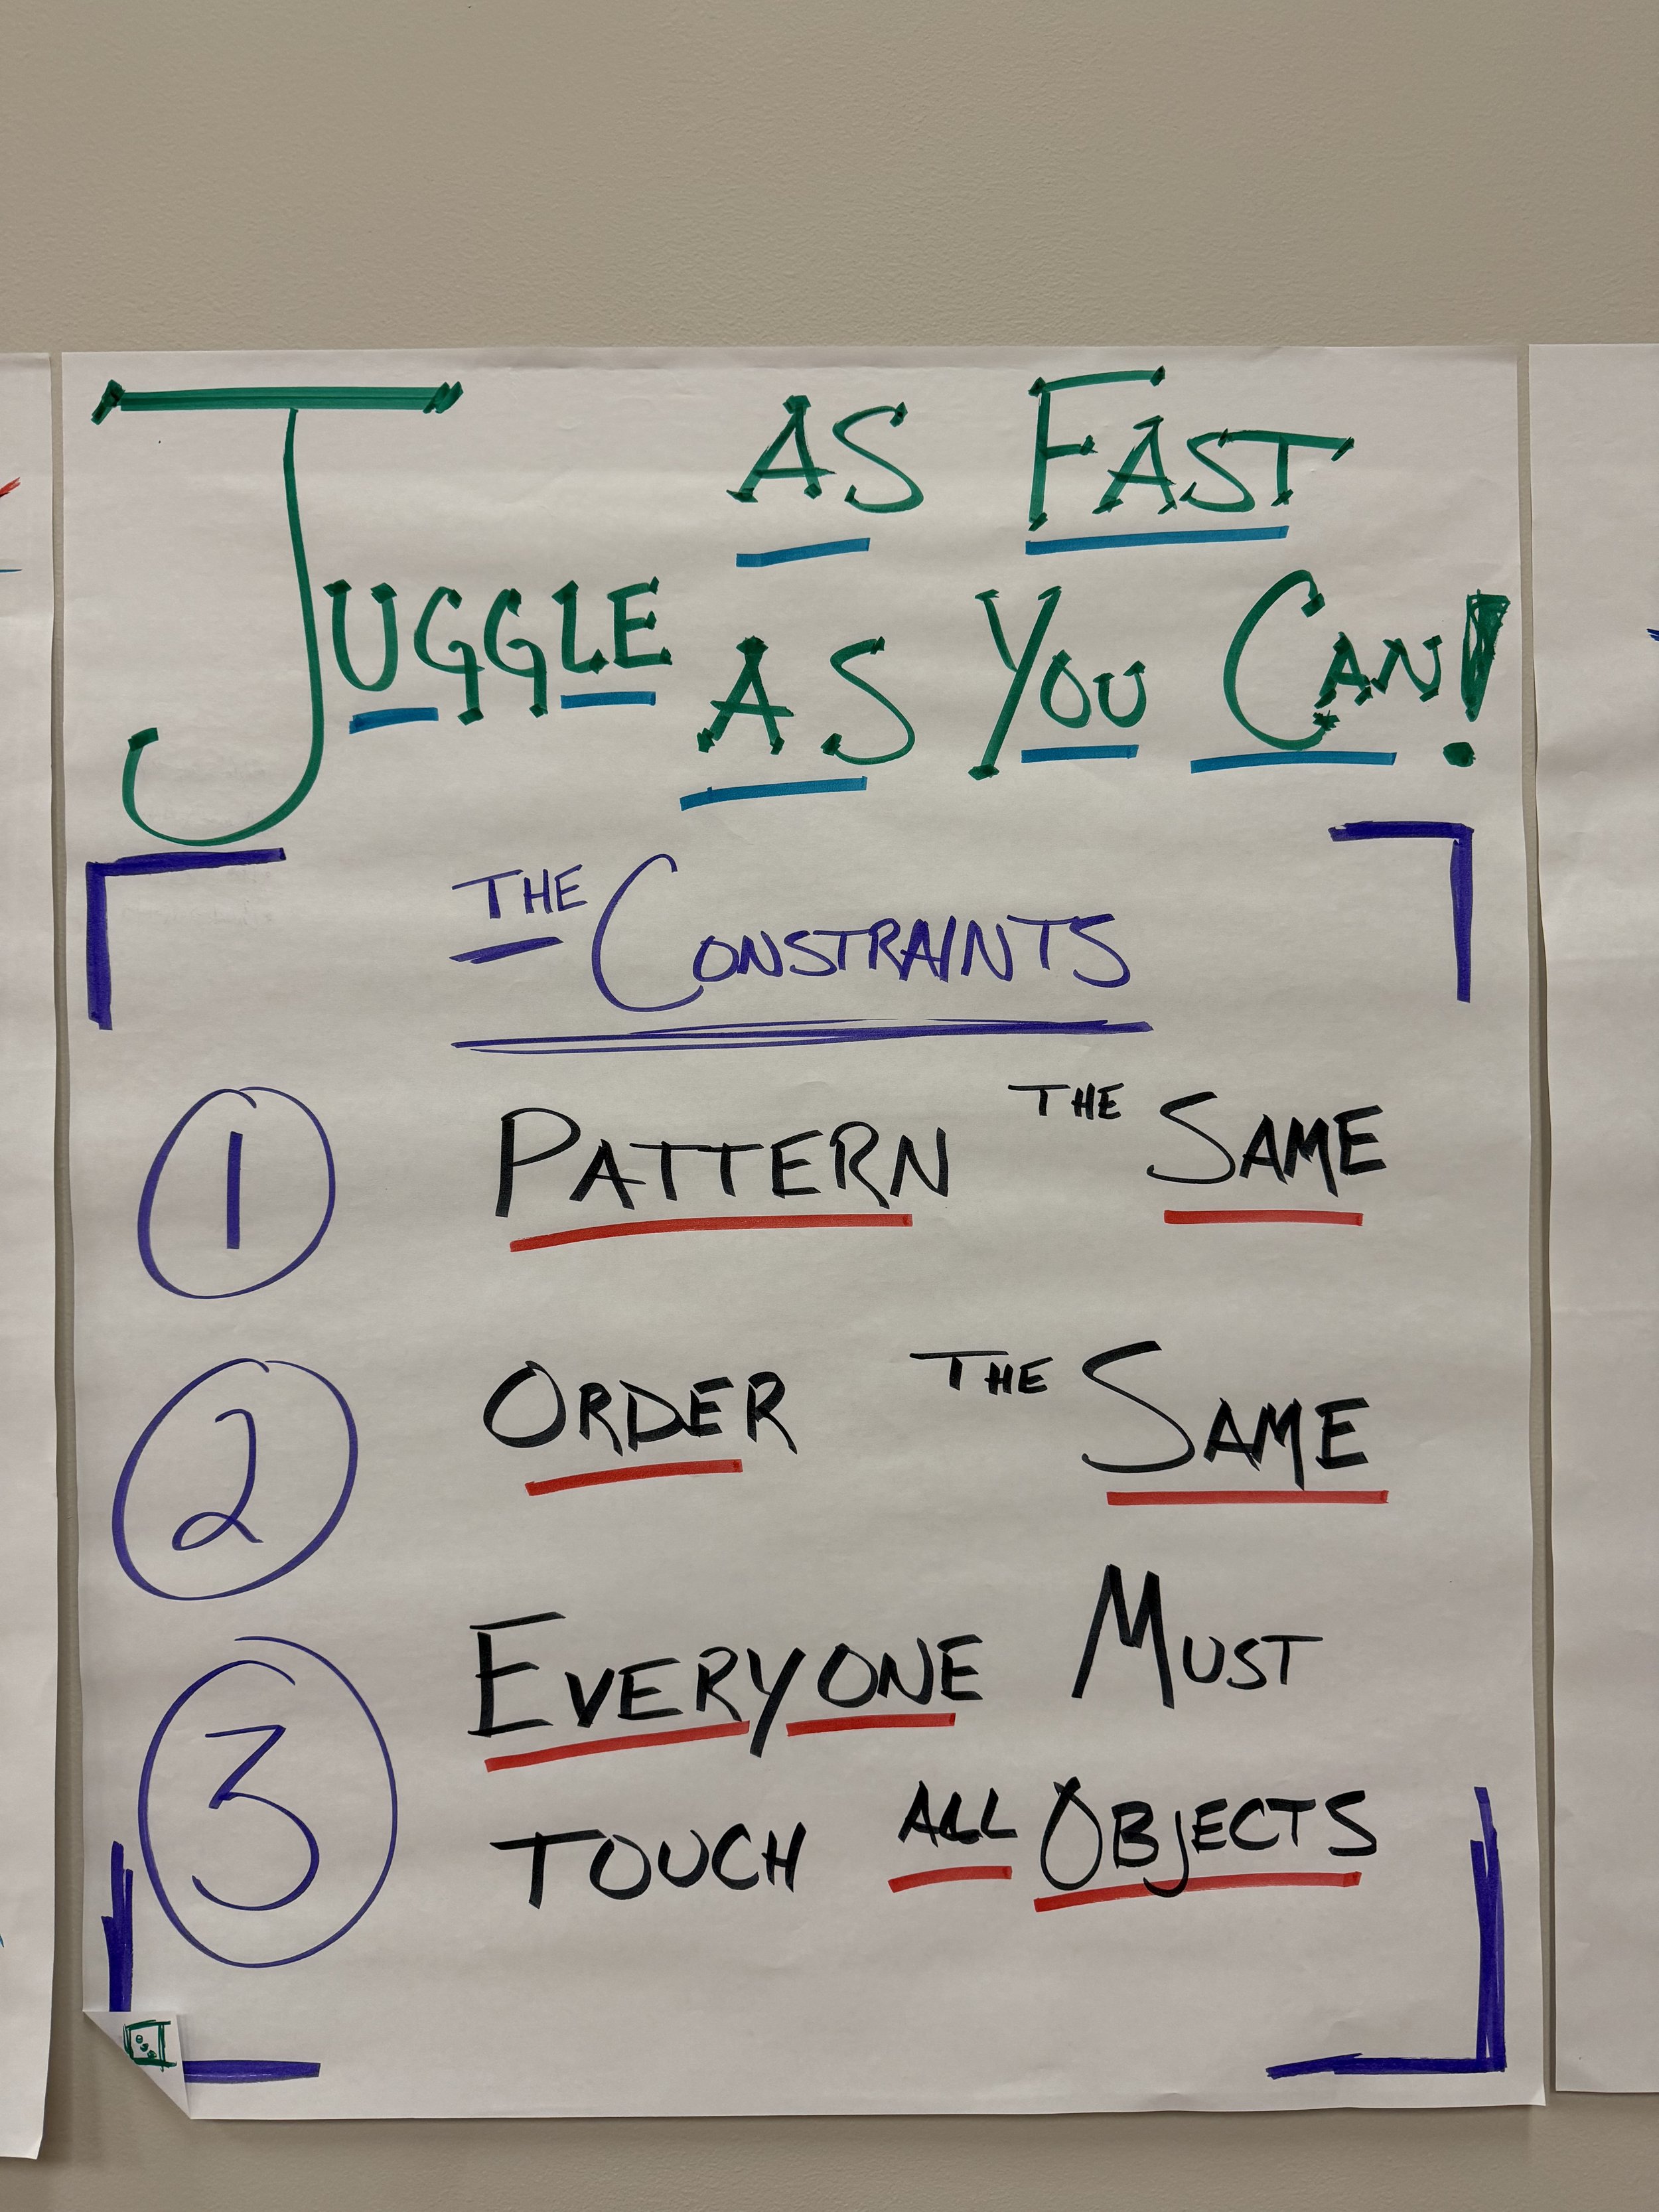 JUGGLE AS FAST
AS YOU CAN!
THE CONSTRAINTS
1 PATTERN THE SAME
2 ORDER THE SAME
3 EVERYONE MUST
TOUCH ALL OBJECTS